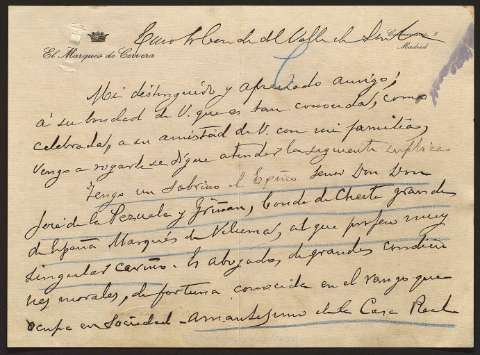 El Marques de Corvera
Madrid
Excmo Sr Conde del Valle de
Mi distinguido y apreciado amigo;
á su bondad de V. que es tan conocida, como
celebrada, a su amistad de V. con mi familia,
vengo a rogarle se digne atender la siguiente suplica
Tengo un sobrino el Exmo Señor Don
José de la Pezuela y Conde de Cheste grande
de España Marques de Viluma, al que profeso muy
singular cariño. Es abogado, de grandes condicio
nes morales, de fortuna conocida en el rango que
ocupa en Sociedad - amantisimo de la Casa Real